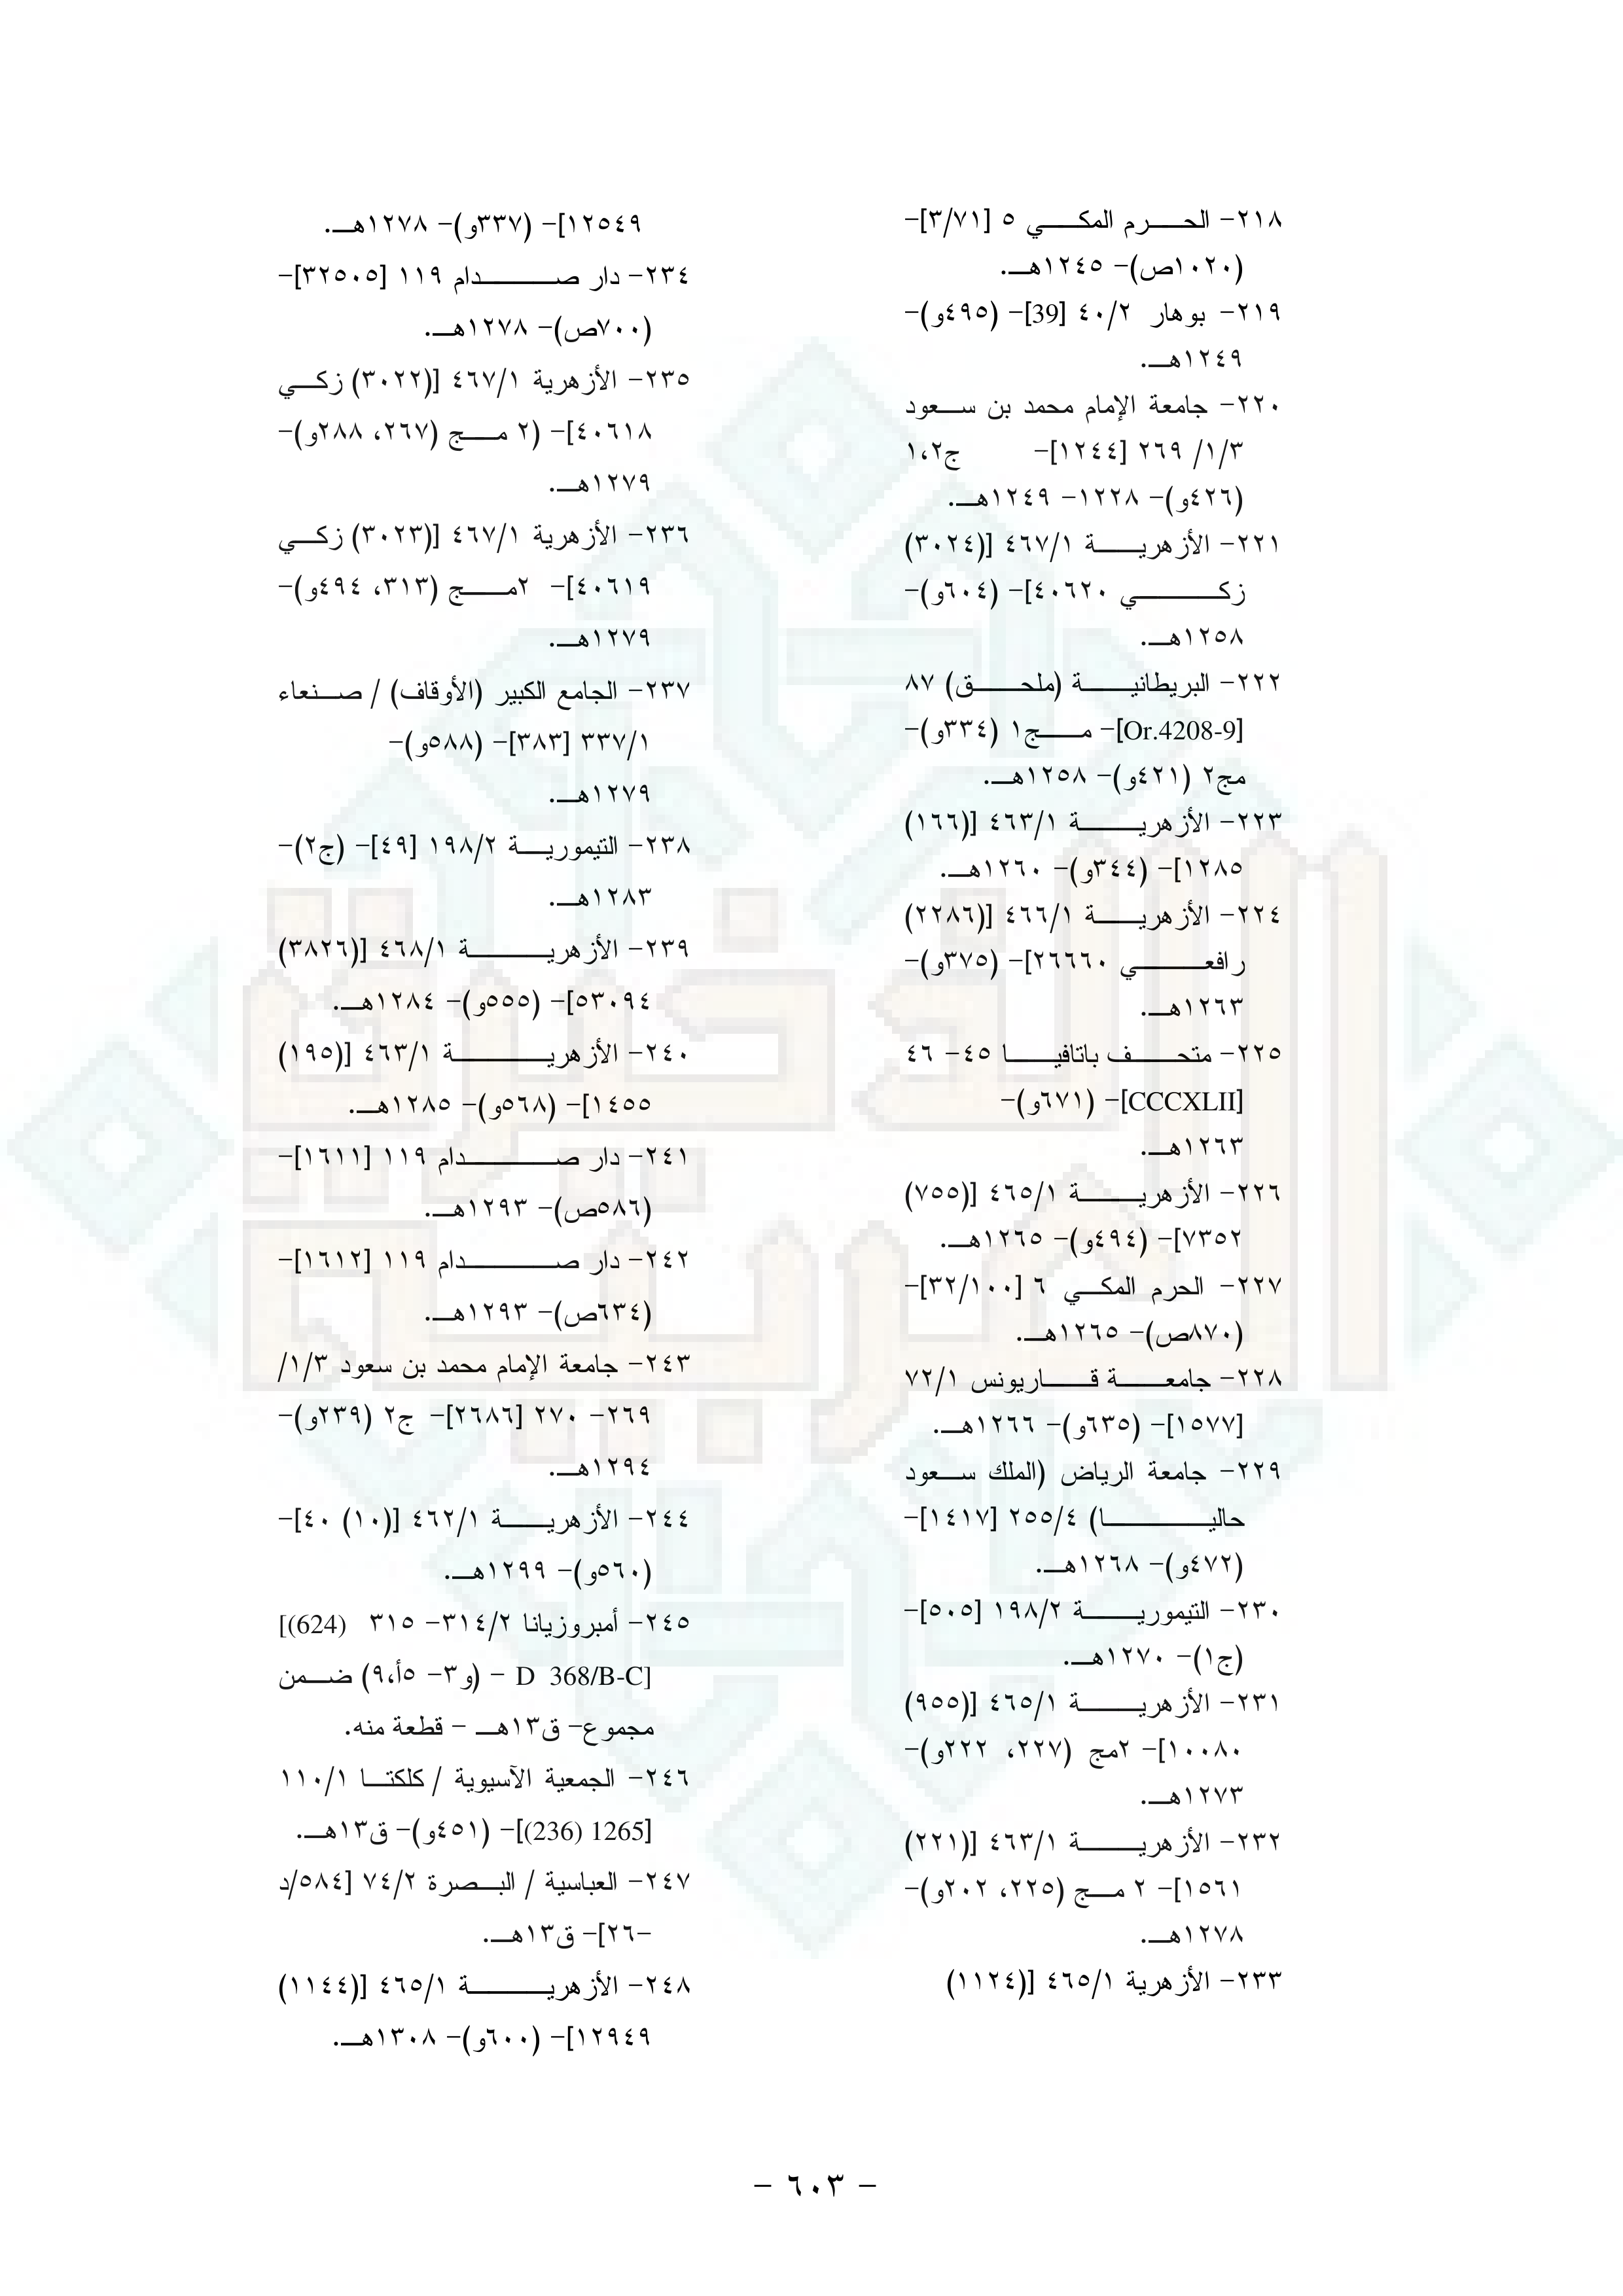 ٢١٨- الحرم المكي ٥ [٣/٧١]-
(١٠٢٠ص)- ١٢٤٥هـ.
٢١٩- بوهار ٤٠/٢ [39]- (٤٩٥و)-
١٢٤٩هـ.
٢٢٠- جامعة الإمام محمد بن سعود
٣/١/ ٢٦٩ [١٢٤٤]- ج١،٢
(٤٢٦و)- ١٢٢٨- ١٢٤٩هـ.
٢٢١- الأزهرية ٤٦٧/١ [(٣٠٢٤)
زكي ٤٠٦٢٠]- (٦٠٤و)-
١٢٥٨هـ.
٢٢٢- البريطانية (ملحق) ٨٧
[Or.4208-9]- مج١ (٣٣٤و)-
مج٢ (٤٢١و)- ١٢٥٨هـ.
٢٢٣- الأزهرية ٤٦٣/١ [(١٦٦)
١٢٨٥]- (٣٤٤و)- ١٢٦٠هـ.
٢٢٤- الأزهرية ٤٦٦/١ [(٢٢٨٦)
رافعي ٢٦٦٦٠]- (٣٧٥و)-
١٢٦٣هـ.
٢٢٥- متحف باتافيا ٤٥- ٤٦
[CCCXLII]- (٦٧١و)-
١٢٦٣هـ.
٢٢٦- الأزهرية ٤٦٥/١ [(٧٥٥)
٧٣٥٢]- (٤٩٤و)- ١٢٦٥هـ.
٢٢٧- الحرم المكي ٦ [٣٢/١٠٠]-
(٨٧٠ص)- ١٢٦٥هـ.
٢٢٨- جامعة قاريونس ٧٢/١
[١٥٧٧]- (٦٣٥و)- ١٢٦٦هـ.
٢٢٩- جامعة الرياض (الملك سعود
حاليا) ٢٥٥/٤ [١٤١٧]-
(٤٧٢و)- ١٢٦٨هـ.
٢٣٠- التيمورية ١٩٨/٢ [٥٠٥]-
(ج١)- ١٢٧٠هـ.
٢٣١- الأزهرية ٤٦٥/١ [(٩٥٥)
١٠٠٨٠]- ٢مج (٢٢٧، ٢٢٢و)-
١٢٧٣هـ.
٢٣٢- الأزهرية ٤٦٣/١ [(٢٢١)
١٥٦١]- ٢ مج (٢٢٥، ٢٠٢و)-
١٢٧٨هـ.
٢٣٣- الأزهرية ٤٦٥/١ [(١١٢٤)
١٢٥٤٩]- (٣٣٧و)- ١٢٧٨هـ.
٢٣٤- دار صدام ١١٩ [٣٢٥٠٥]-
(٧٠٠ص)- ١٢٧٨هـ.
٢٣٥- الأزهرية ٤٦٧/١ [(٣٠٢٢) زكي
٤٠٦١٨]- (٢ مج (٢٦٧، ٢٨٨و)-
١٢٧٩هـ.
٢٣٦- الأزهرية ٤٦٧/١ [(٣٠٢٣) زكي
٤٠٦١٩]- ٢مج (٣١٣، ٤٩٤و)-
١٢٧٩هـ.
٢٣٧- الجامع الكبير (الأوقاف) / صنعاء
٣٣٧/١ [٣٨٣]- (٥٨٨و)-
١٢٧٩هـ.
٢٣٨- التيمورية ١٩٨/٢ [٤٩]- (ج٢)-
١٢٨٣هـ.
٢٣٩- الأزهرية ٤٦٨/١ [(٣٨٢٦)
٥٣٠٩٤]- (٥٥٥و)- ١٢٨٤هـ.
٢٤٠- الأزهرية ٤٦٣/١ [(١٩٥)
١٤٥٥]- (٥٦٨و)- ١٢٨٥هـ.
٢٤١- دار صدام ١١٩ [١٦١١]-
(٥٨٦ص)- ١٢٩٣هـ.
٢٤٢- دار صدام ١١٩ [١٦١٢]-
(٦٣٤ص)- ١٢٩٣هـ.
٢٤٣- جامعة الإمام محمد بن سعود ٣/١/
٢٦٩- ٢٧٠ [٢٦٨٦]- ج٢ (٢٣٩و)-
١٢٩٤هـ.
٢٤٤- الأزهرية ٤٦٢/١ [(١٠) ٤٠]-
(٥٦٠و)- ١٢٩٩هـ.
٢٤٥- أمبروزيانا ٣١٤/٢- ٣١٥ [(624)
D 368/B-C] - (و٣- ٥أ،٩) ضمن
مجموع- ق١٣هـ - قطعة منه.
٢٤٦- الجمعية الآسيوية / كلكتا ١١٠/١
[1265 (236)]- (٤٥١و)- ق١٣هـ.
٢٤٧- العباسية / البصرة ٧٤/٢ [٥٨٤/د
-٢٦]- ق١٣هـ.
٢٤٨- الأزهرية ٤٦٥/١ [(١١٤٤)
١٢٩٤٩]- (٦٠٠و)- ١٣٠٨هـ.
- ٦٠٣ -